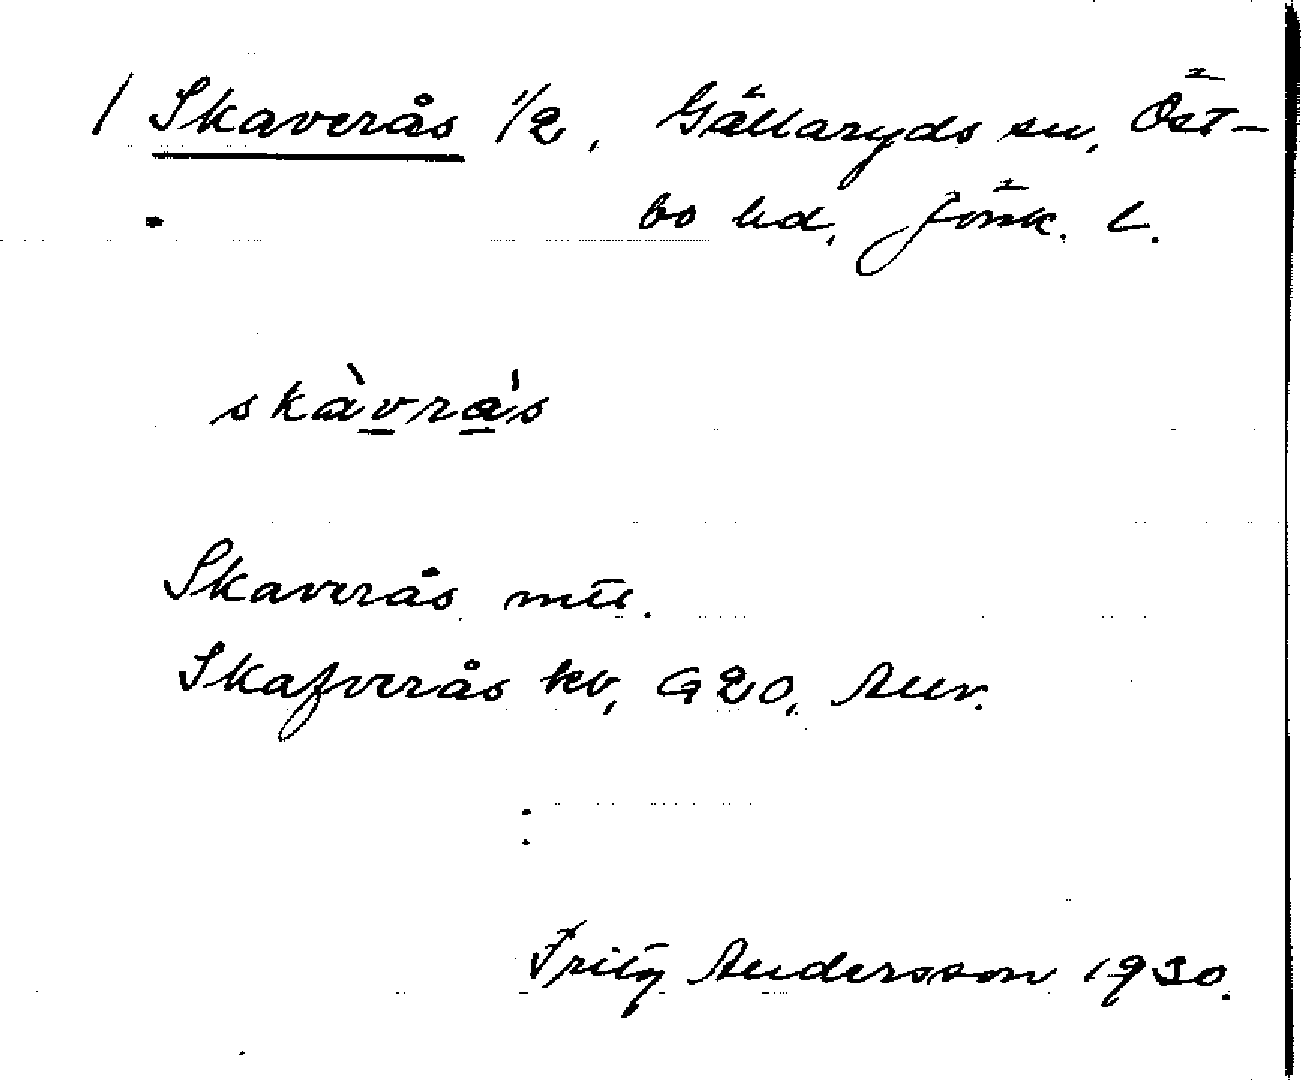 / Skaverås 1/2, Gällaryds sn, Öst-
bo hd, Jönk. L.
skàvrás
Skaverås mtl.
Skafverås kv, G20, Anv.
Fritz Andersson 1930.